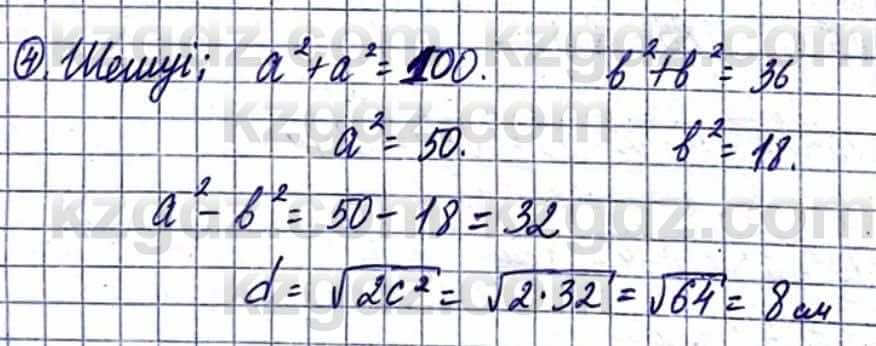 ④. Шешуі; a² + a² = 100. b² + b² = 36
a² = 50. b² = 18.
a² - b² = 50 - 18 = 32
d = √2c² = √2·32 = √64 = 8 см
kzgdz.com
kzgdz.com
kzgdz.com
kzgdz.com
kzgdz.com